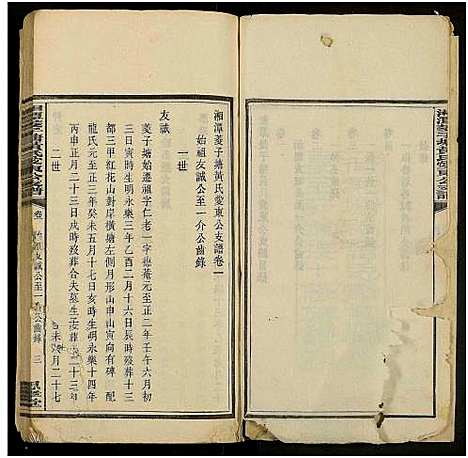 湘潭菱子塘黃氏愛東公支譜卷一
始祖友誠公至一介公齒錄
一世
友誠
菱子塘始遷祖字仁老一字穗菴元至正二年壬午六月初
三日寅時生明永樂三年乙酉二月十六日辰時歿葬十三
都三甲紅花山對岸橫塘左側月形山申山寅向有碑 配
龍氏元至正三年癸未五月十七日亥時生明永樂十四年
丙申正月二十三日戌時歿葬合夫墓生
二世
卷一 始祖友誠公至一介公齒錄 三